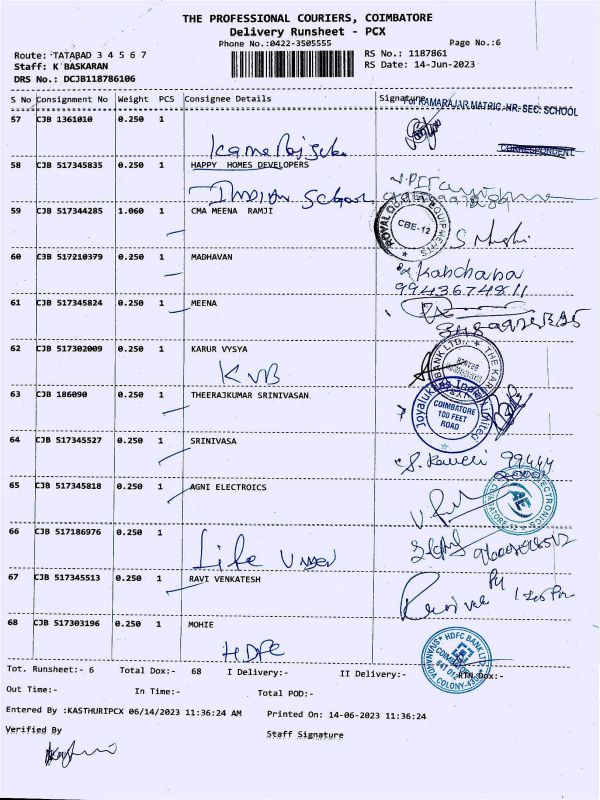 THE PROFESSIONAL COURIERS, COIMBATORE
Delivery Runsheet - PCX
Phone No.:0422-3505555 Page No.:6
Route: TATABAD 3 4 5 6 7 RS No.: 1187861
Staff: K BASKARAN RS Date: 14-Jun-2023
DRS No.: DCJB118786106
S No Consignment No Weight PCS Consignee Details Signature
For KAMARAJAR MATRIC. HR. SEC. SCHOOL
57 CJB 1361010 0.250 1
CORRESPONDENT
58 CJB 517345835 0.250 1 HAPPY HOMES DEVELOPERS
Indian School
59 CJB 517344285 1.060 1 CMA MEENA RAMJI
ROYAL EQUIPMENTS
CBE-12
60 CJB 517210379 0.250 1 MADHAVAN
Kabchana
9943674811
61 CJB 517345824 0.250 1 MEENA
62 CJB 517302009 0.250 1 KARUR VYSYA
KVB
BANK LTD. THE KARUR
63 CJB 186090 0.250 1 THEERAJKUMAR SRINIVASAN
Joyalukkas India Limited
COIMBATORE
100 FEET
ROAD
64 CJB 517345527 0.250 1 SRINIVASA
99444
65 CJB 517345818 0.250 1 AGNI ELECTROICS
ELECTRONICS
AE
66 CJB 517186976 0.250 1
Life
67 CJB 517345513 0.250 1 RAVI VENKATESH
68 CJB 517303196 0.250 1 MOHIE
HDFC
HDFC BANK LTD
COIMBATORE
641 012
Tot. Runsheet:- 6 Total Dox:- 68 I Delivery:- II Delivery:- RTN Dox:-
Out Time:- In Time:- Total POD:-
Entered By :KASTHURIPCX 06/14/2023 11:36:24 AM Printed On: 14-06-2023 11:36:24
Verified By Staff Signature